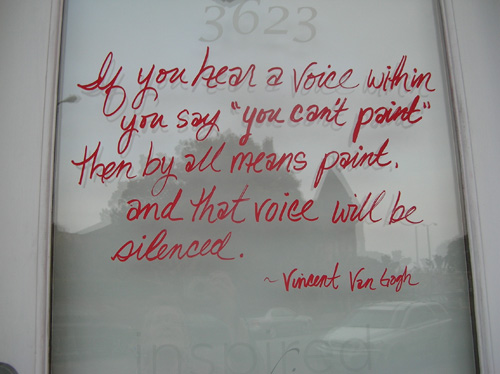 3623
If you hear a voice within
you say "you can't paint"
then by all means paint.
and that voice will be
silenced.
~ Vincent Van Gogh
inspired